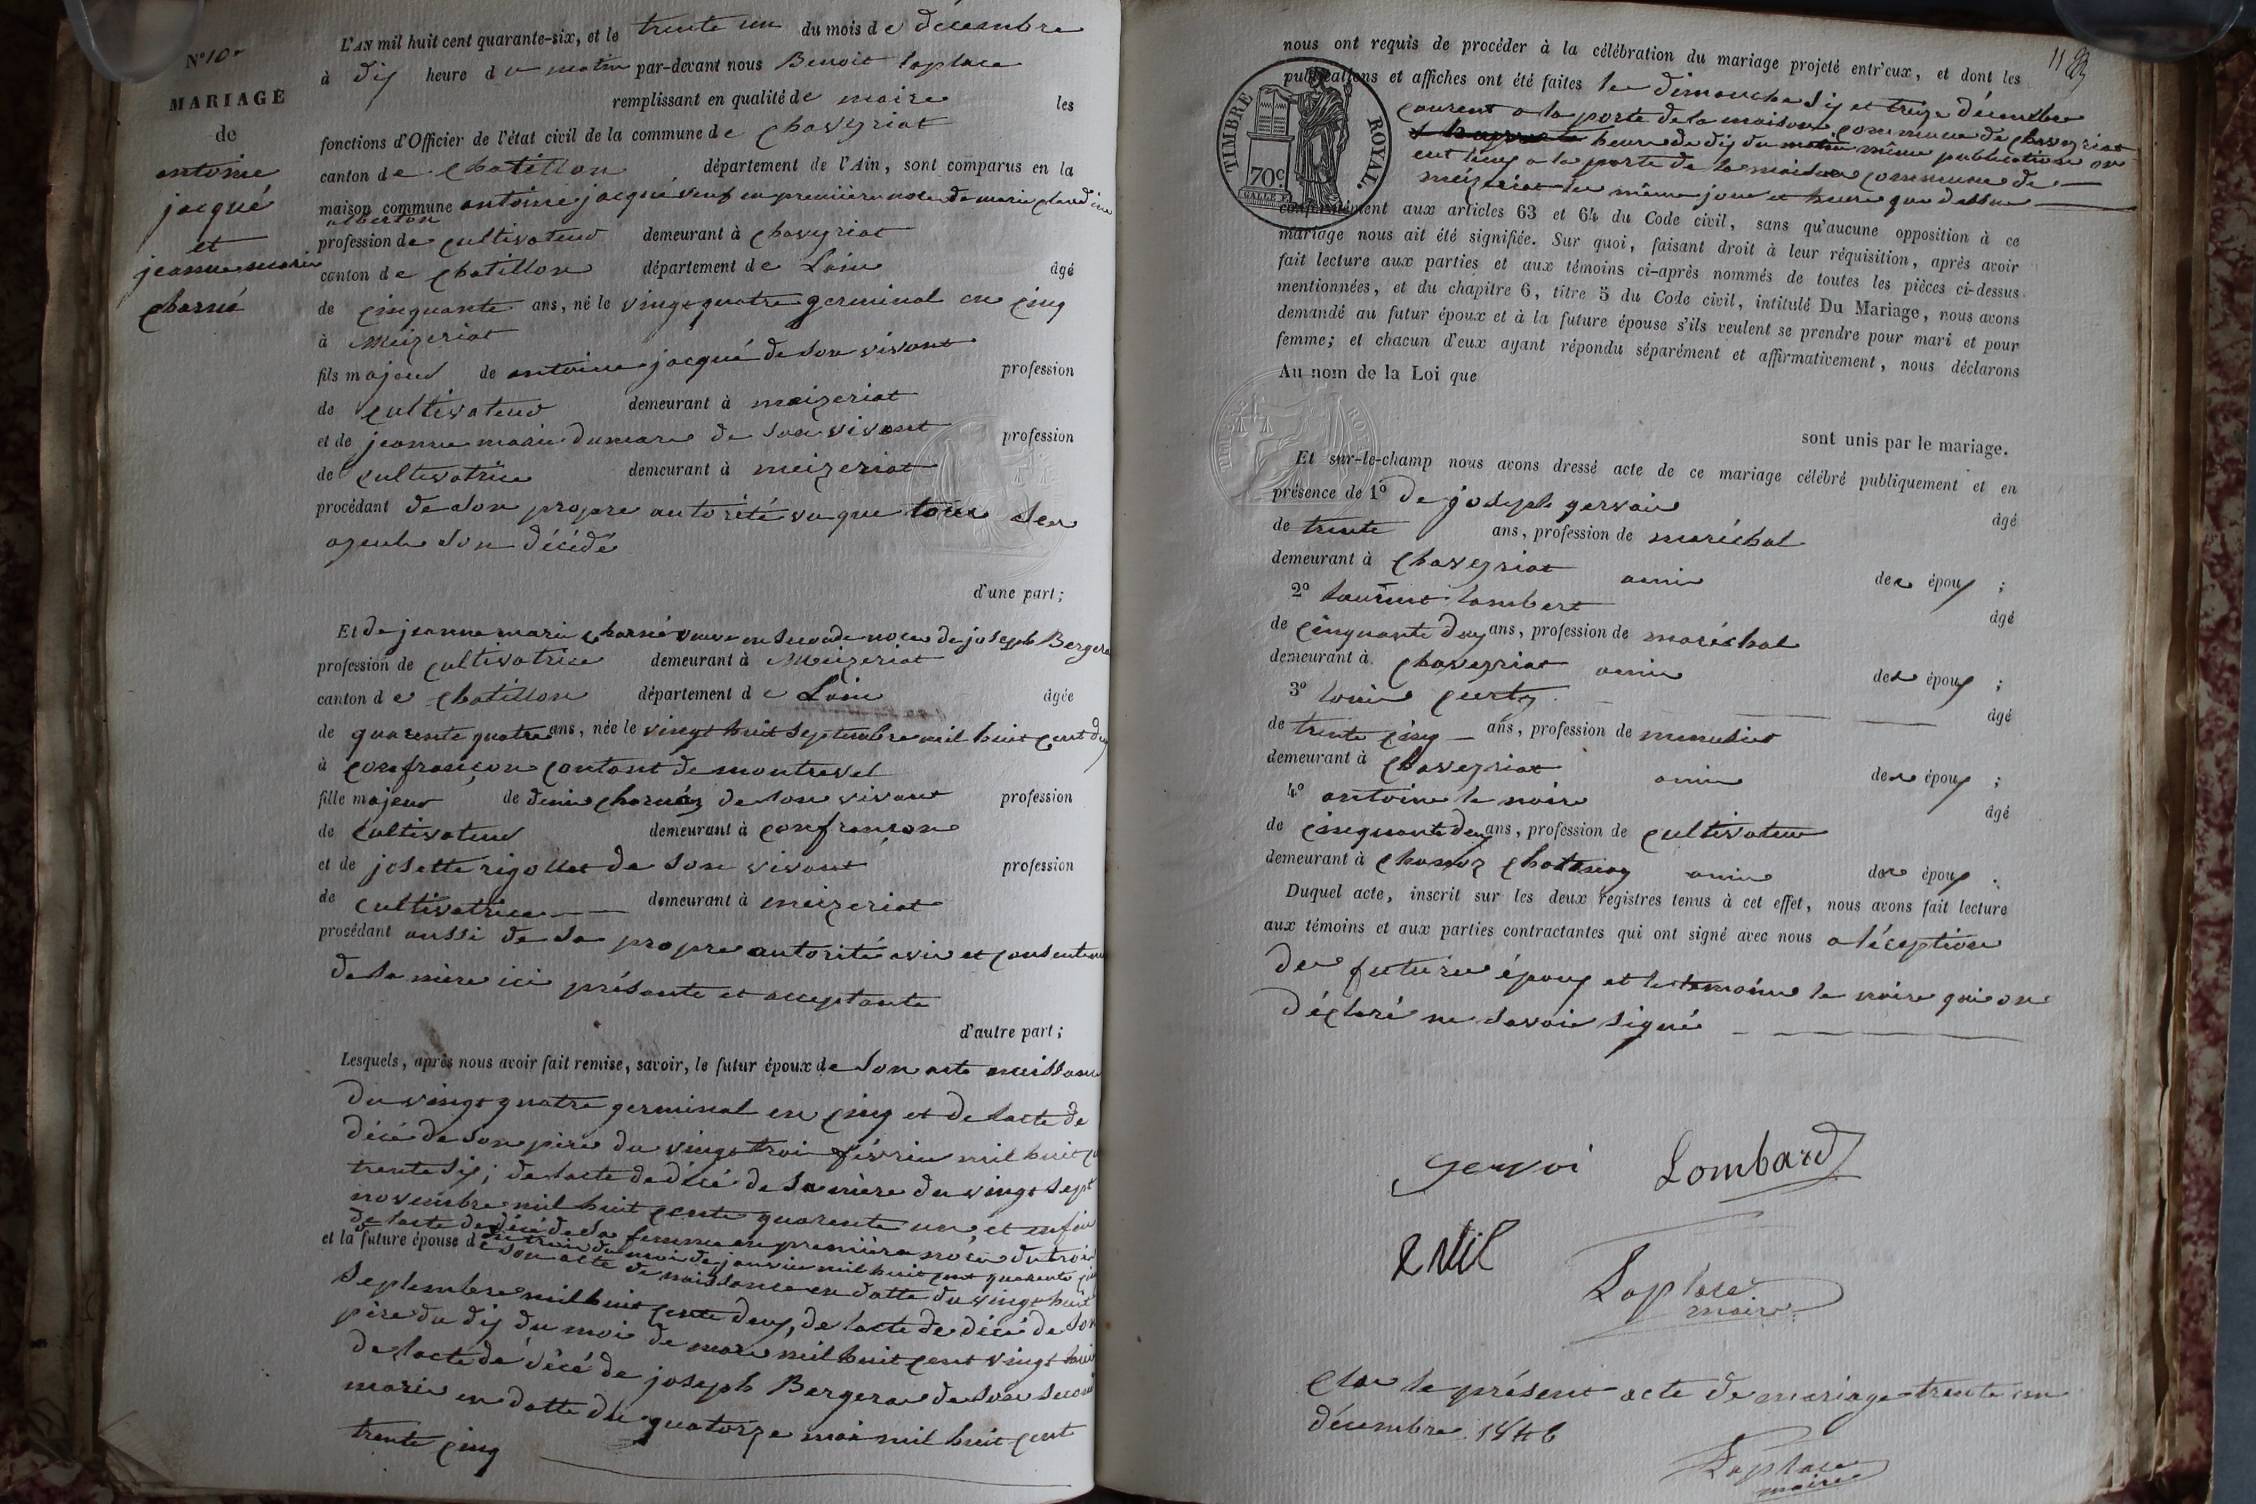 N° 10.
MARIAGE
de
antoine
jacqué
et
jeanne marie
charné
L'AN mil huit cent quarante-six, et le trente un du mois de décembre
à dix heure du matin par-devant nous Benoit laplace
remplissant en qualité de maire les
fonctions d'Officier de l'état civil de la commune de chaveyriat
canton de chatillon département de l'Ain, sont comparus en la
maison commune antoine jacqué veuf en première noce de marie claudine
alberton
profession de cultivateur demeurant à chaveyriat
canton de chatillon département de Lain âgé
de cinquante ans, né le vingt quatre germinal en cinq
à Meizeriat
fils majeur de antoine jacqué de son vivant profession
de cultivateur demeurant à meizeriat
et de jeanne marie dumare de son vivant profession
de cultivatrice demeurant à meizeriat
procédant de son propre autorité vu que tous ses
ayeuls son décédé
d'une part;
Et de jeanne marie charné veuve en seconde noce de joseph Bergera
profession de cultivatrice demeurant à Meizeriat
canton de chatillon département de Lain âgée
de quarente quatre ans, née le vingt huit septembre mil huit cent deux
à confrançon contont de montrevel
fille majeur de denis charnéz de son vivant profession
de cultivateur demeurant à confrançon
et de josette rigollet de son vivant profession
de cultivatrice demeurant à meizeriat
procédant aussi de sa propre autorité avis et consentem
de sa mère ici présante et acceptante
d'autre part;
Lesquels, après nous avoir fait remise, savoir, le futur époux de son acte naissance
du vingt quatre germinal en cinq et de lacte de
décé de son père du vingt troi février mil huit c
trente six; de lacte de décé de sa mère du vingt sept
novembre mil huit cente quarente un, et enfin
de lacte de décé de sa femme en première noce du troi
du troi du moi de janvier mil huit cent quarante cin
et la future épouse de son acte de naissance en datte du vingt huit
septembre mil huit cente deux, de lacte de décé de son
père du dix du moi de mars mil huit cent vingt
de lacte de décé de joseph Bergera de son second
marie en datte du quatorze mai mil huit cent
trente cinq
nous ont requis de procéder à la célébration du mariage projeté entr'eux, et dont les
publications et affiches ont été faites le dimanche six et treize décembre
courent a la porte de la maison commune de chaveyriat
heure de dix du matin même publication on
eut lieu a la porte de la maison commune de
meizeriat les même jour et heure que dessu
conformément aux articles 63 et 64 du Code civil, sans qu'aucune opposition à ce
mariage nous ait été signifiée. Sur quoi, faisant droit à leur réquisition, après avoir
fait lecture aux parties et aux témoins ci-après nommés de toutes les pièces ci-dessus
mentionnées, et du chapitre 6, titre 5 du Code civil, intitulé Du Mariage, nous avons
demandé au futur époux et à la future épouse s'ils veulent se prendre pour mari et pour
femme; et chacun d'eux ayant répondu séparément et affirmativement, nous déclarons
Au nom de la Loi que
sont unis par le mariage.
Et sur-le-champ nous avons dressé acte de ce mariage célébré publiquement et en
présence de 1° de joseph gervais âgé
de trente ans, profession de maréchal
demeurant à chaveyriat amie des époux ;
2° laurent lambert âgé
de cinquante deux ans, profession de maréchal
demeurant à chaveyriat amie des époux ;
3° louis curty âgé
de trente cinq ans, profession de menusier
demeurant à chaveyriat amie des époux ;
4° antoine le noire âgé
de cinquante deux ans, profession de cultivateur
demeurant à chanoz chatenay amie des époux .
Duquel acte, inscrit sur les deux registres tenus à cet effet, nous avons fait lecture
aux témoins et aux parties contractantes qui ont signé avec nous a léception
des future époux et le témoine le noire qui on
déclaré ne savoir signé
TIMBRE ROYAL.
70c.
gervoi Lombard
Laplace
maire
Clos le présent acte de mariage trente un
décembre 1846
Laplace
maire